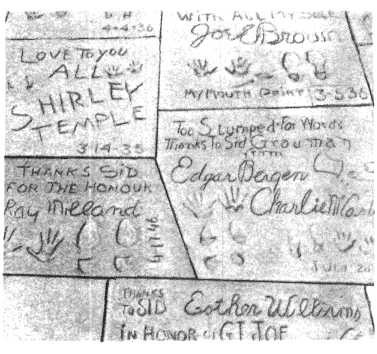 4-4-36
LOVE TO YOU
ALL
SHIRLEY
TEMPLE
3-14-35
WITH ALL MY
Joe E Brown
MY MOUTH PRINT
3-5-36
Too Slumped For Words
Thanks To Sid Grauman
FROM
Edgar Bergen
Charlie
THANKS SID
FOR THE HONOUR
Ray Milland
THANKS
TO SID
Esther Williams
IN HONOR OF GI JOE